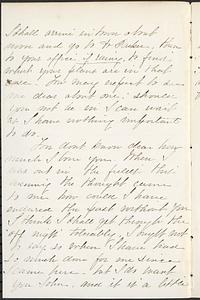 I shall arrive in town about
noon and go to Dr then
to your office if to find
what your plans are in that
case. You may expect to see
me dear about one; should
you not be in I can wait
as I have nothing important
to do.
You don't know dear how
much I love you. When I
was out in the fields this
evening the thought came
to me how could I have
endured the past without you
I think I shall get through the
off night tolerably, I ought not
to say so when I have had
so much done for me since
I came here. but I do want
you John, and it is a little